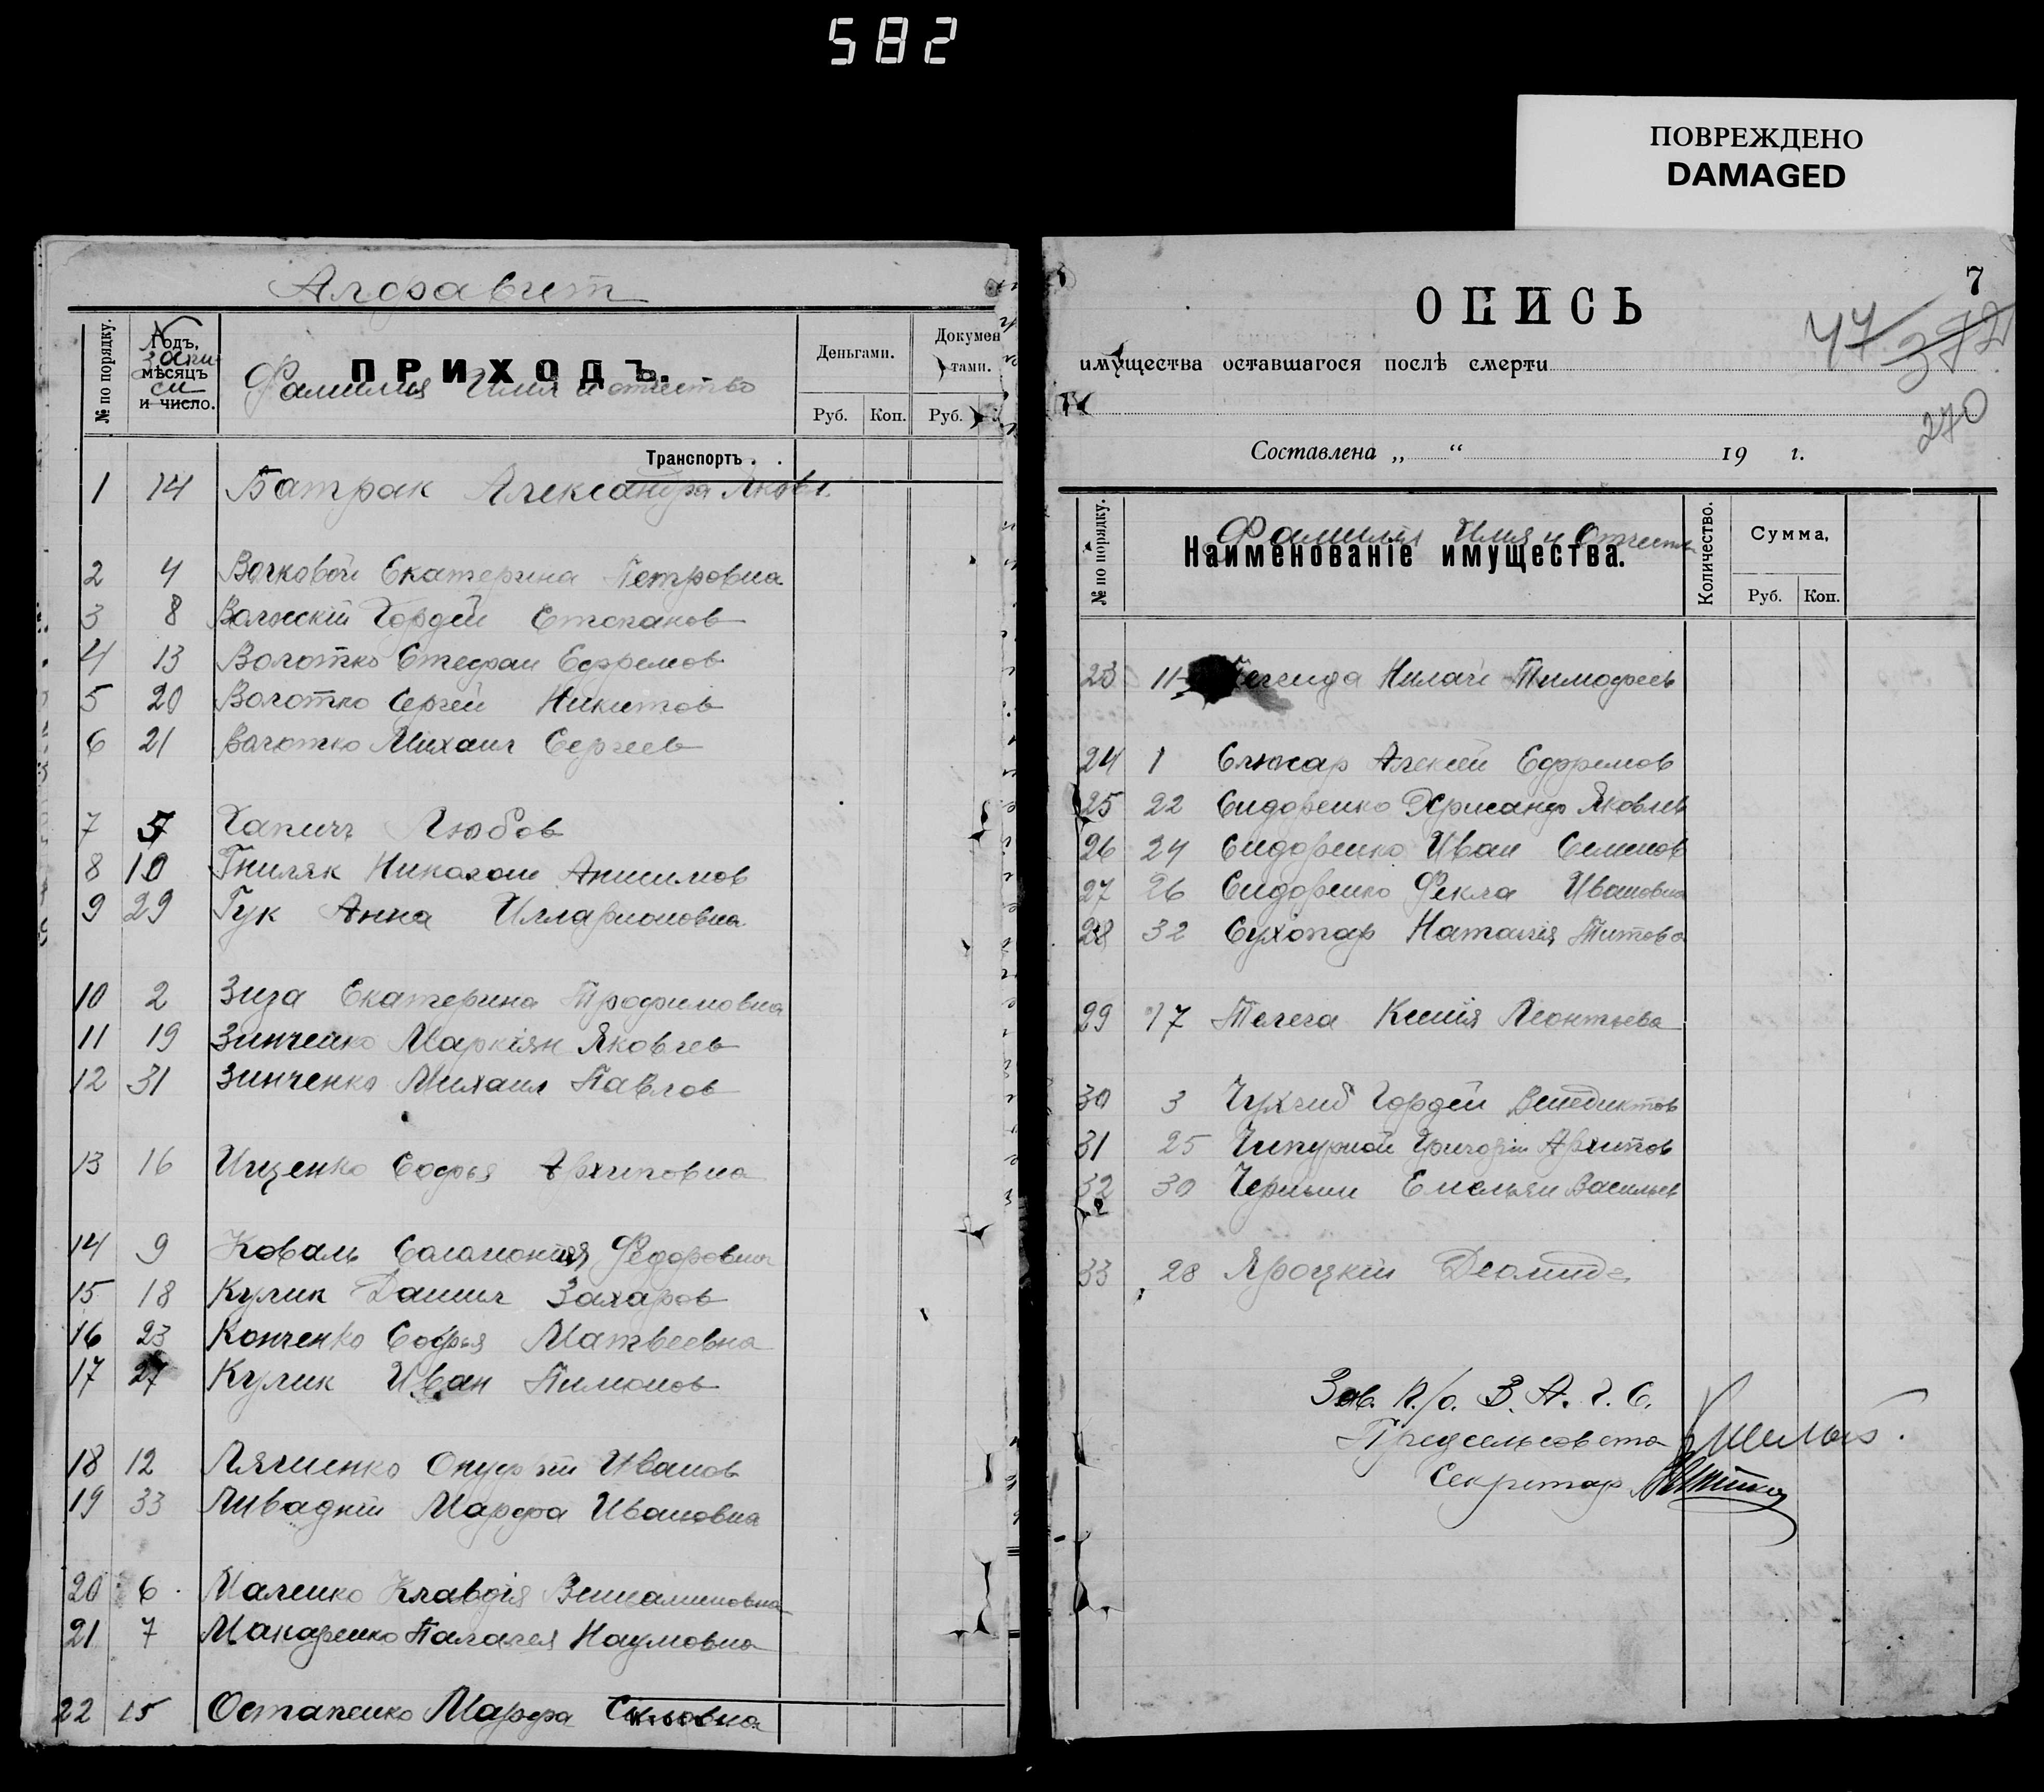 582
ПОВРЕЖДЕНО
DAMAGED
Алфавит
№ по порядку.
Годъ, мѣсяцъ и число.
№ записи
ПРИХОДЪ.
Фамилия Имя и отчество
Деньгами.
Документами.
Руб. Коп. Руб.
Транспортъ . .
1 14 Батрак Александра Яковл.
2 4 Волковой Екатерина Петровна
3 8 Волжскій Гордей Степанов
4 13 Волотко Стефан Ефремов
5 20 Волотко Сергей Никитов
6 21 Волотко Михаил Сергеев
7 5 Гапичъ Любов
8 10 Гниляк Николай Анисимов
9 29 Гук Анна Илларионовна
10 2 Зиза Екатерина Трофимовна
11 19 Зинченко Маркіян Яковлев
12 31 Зинченко Михаил Павлов
13 16 Ищенко Софья Архиповна
14 9 Коваль Соломония Федоровна
15 18 Кулик Даниил Захаров
16 23 Конченко Софья Матвеевна
17 27 Кулик Иван Пимонов
18 12 Ляшенко Онуфрий Иванов
19 33 Ливадній Марфа Ивановна
20 6 Маленко Клавдія Вениаминовна
21 7 Макаренко Палагея Наумовна
22 15 Остапенко Марфа
7
ОПИСЬ
44 372
имущества оставшагося послѣ смерти
270
Составлена „ “ 19 г.
№ по порядку.
Фамилия Имя и Отчеств
Наименованіе имущества.
Количество.
Сумма,
Руб. Коп.
23 11 Тимофеев
24 1 Слюсар Алексей Ефремов
25 22 Сидоренко Хрисанф Яковлев
26 24 Сидоренко Иван Семенов
27 26 Сидоренко Фекла Ивановна
28 32 Сухопар Наталія Титова
29 17 Телега Ксенія Леонтьева
30 3 Чухлиб Гордей Венедиктов
31 25 Чипурной Григорій Архипов
32 30 Черныш Емельян Васильев
33 28 Яроцкій Деомид
Зав. п/о. З. А. Г. С.
Предсельсовета
Секретар